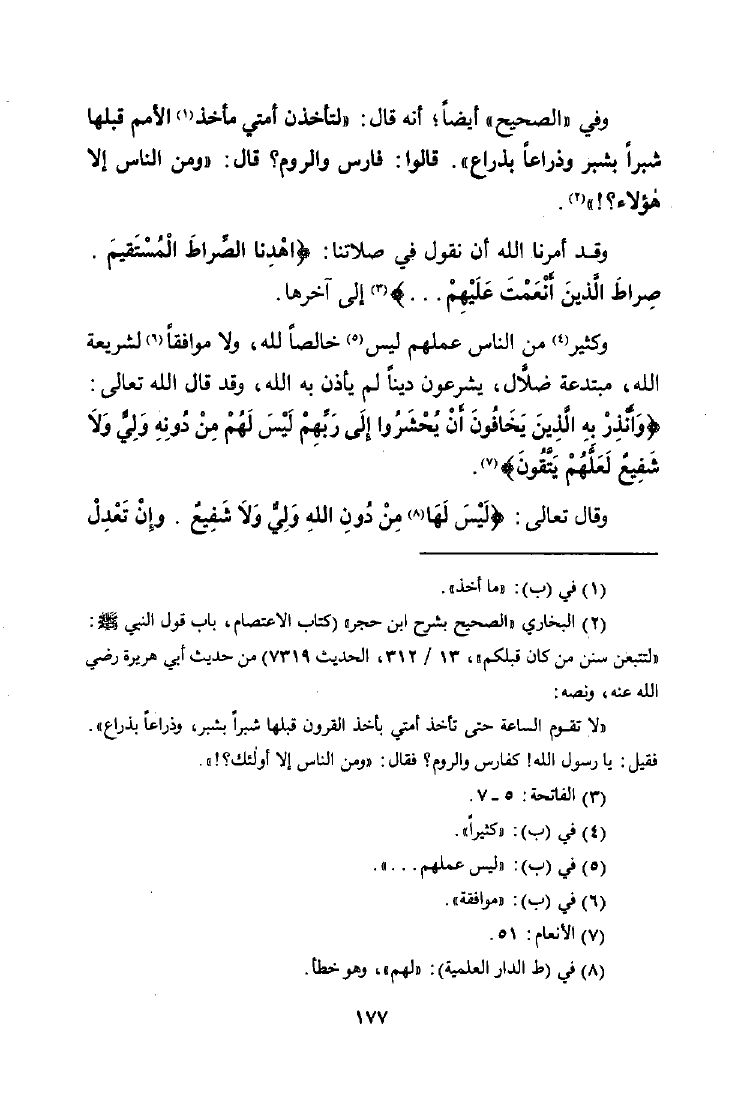 وفي «الصحيح» أيضاً؛ أنه قال: «لتأخذن أمتي مأخذ(١) الأمم قبلها
شبراً بشبر وذراعاً بذراع». قالوا: فارس والروم؟ قال: «ومن الناس إلا
هٰؤلاء؟!»(٢).
وقد أمرنا الله أن نقول في صلاتنا: ﴿اهْدِنا الصِّراطَ الْمُسْتَقيمَ .
صِراطَ الَّذينَ أَنْعَمْتَ عَلَيْهِمْ . . .﴾(٣) إلى آخرها.
وكثير(٤) من الناس عملهم ليس(٥) خالصاً لله، ولا موافقاً(٦) لشريعة
الله، مبتدعة ضلَّال، يشرعون ديناً لم يأذن به الله، وقد قال الله تعالى:
﴿وَأَنْذِرْ بِهِ الَّذينَ يَخَافُونَ أَنْ يُحْشَرُوا إِلَى رَبِّهِمْ لَيْسَ لَهُمْ مِنْ دُونِهِ وَلِيٌّ وَلَا
شَفِيعٌ لَعَلَّهُمْ يَتَّقُونَ﴾(٧).
وقال تعالى: ﴿لَيْسَ لَهَا(٨) مِنْ دُونِ اللهِ وَلِيٌّ وَلَا شَفِيعٌ . وإِنْ تَعْدِلْ
(١) في (ب): «ما أخذ».
(٢) البخاري «الصحيح بشرح ابن حجر» (كتاب الاعتصام، باب قول النبي ﷺ:
«لتتبعن سنن من كان قبلكم»، ١٣ / ٣١٢، الحديث ٧٣١٩) من حديث أبي هريرة رضي
الله عنه، ونصه:
«لا تقوم الساعة حتى تأخذ أمتي بأخذ القرون قبلها شبراً بشبر، وذراعاً بذراع».
فقيل: يا رسول الله! كفارس والروم؟ فقال: «ومن الناس إلا أولٰئك؟!».
(٣) الفاتحة: ٥ ـ ٧.
(٤) في (ب): «كثيراً».
(٥) في (ب): «ليس عملهم . . .».
(٦) في (ب): «موافقة».
(٧) الأنعام: ٥١.
(٨) في (ط الدار العلمية): «لهم»، وهو خطأ.
١٧٧